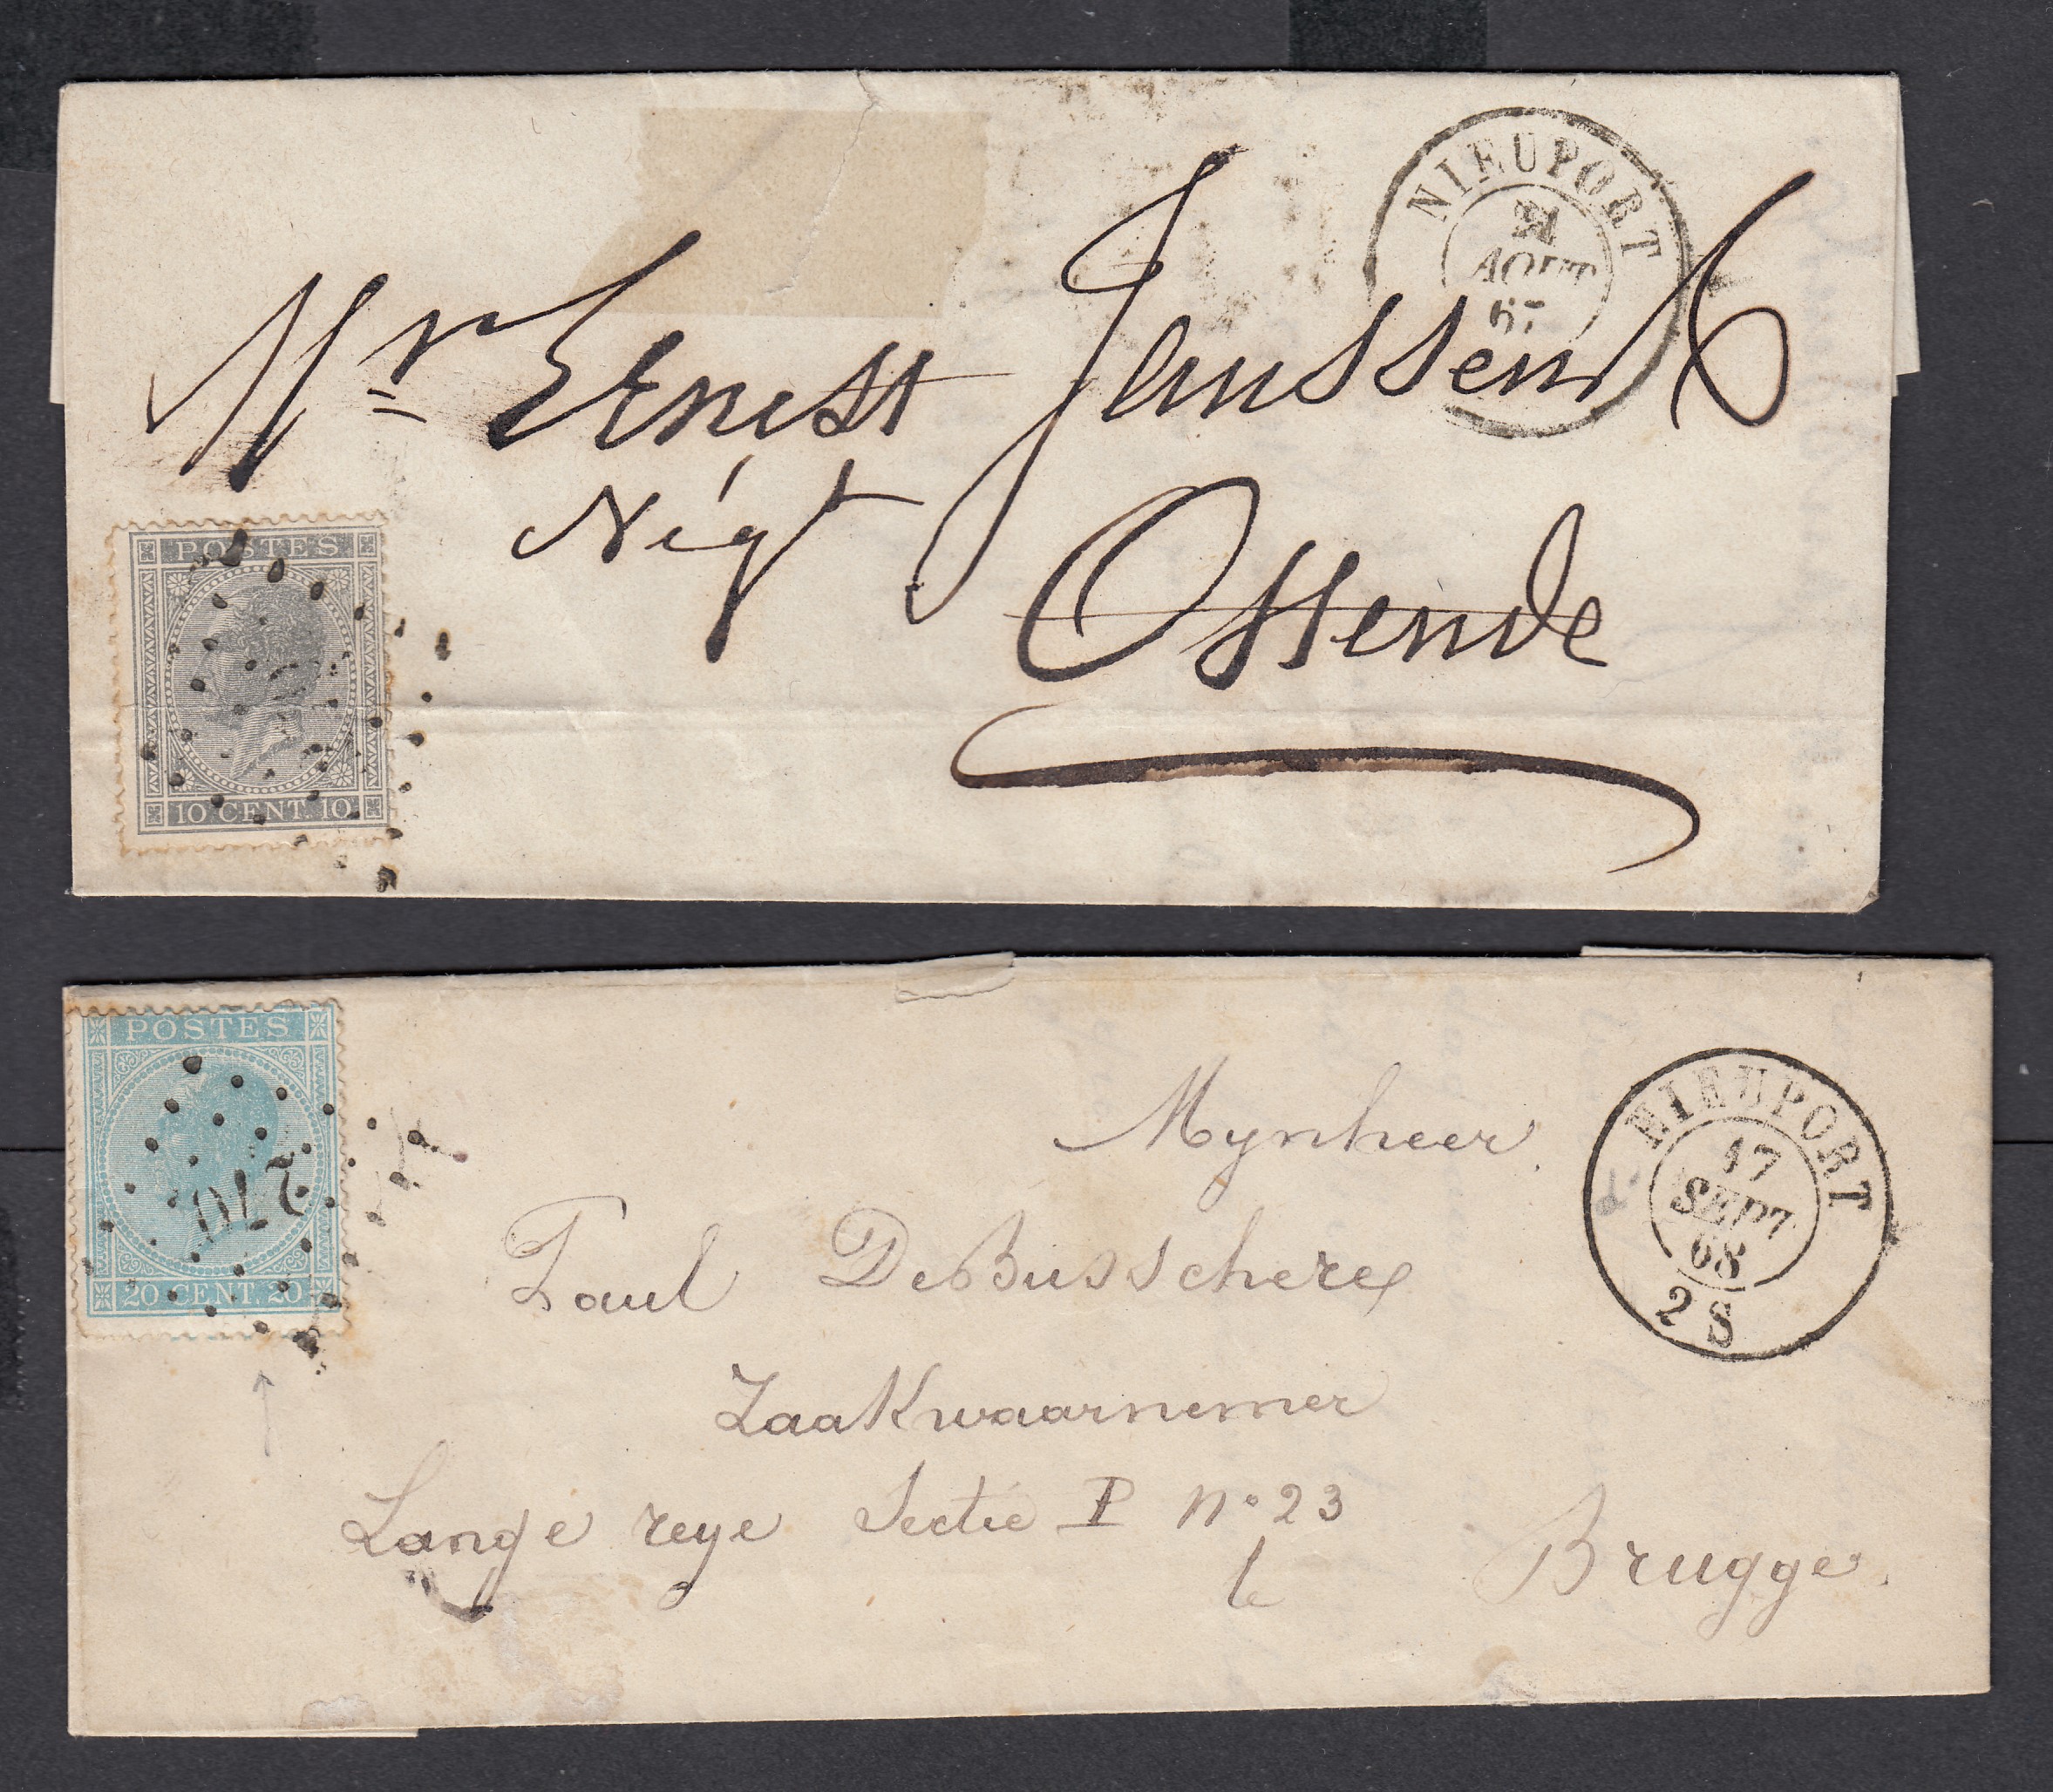 NIEUPORT
AOUT
67
Mr Ernest Janssens
Négt
Ostende
POSTES
10 CENT. 10
POSTES
270
20 CENT. 20
NIEUPORT
17
SEPT
68
2 S
Mynheer
Paul DeBusschere
Zaakwaarnemer
Lange reye Sectie P N° 23
Brugge.